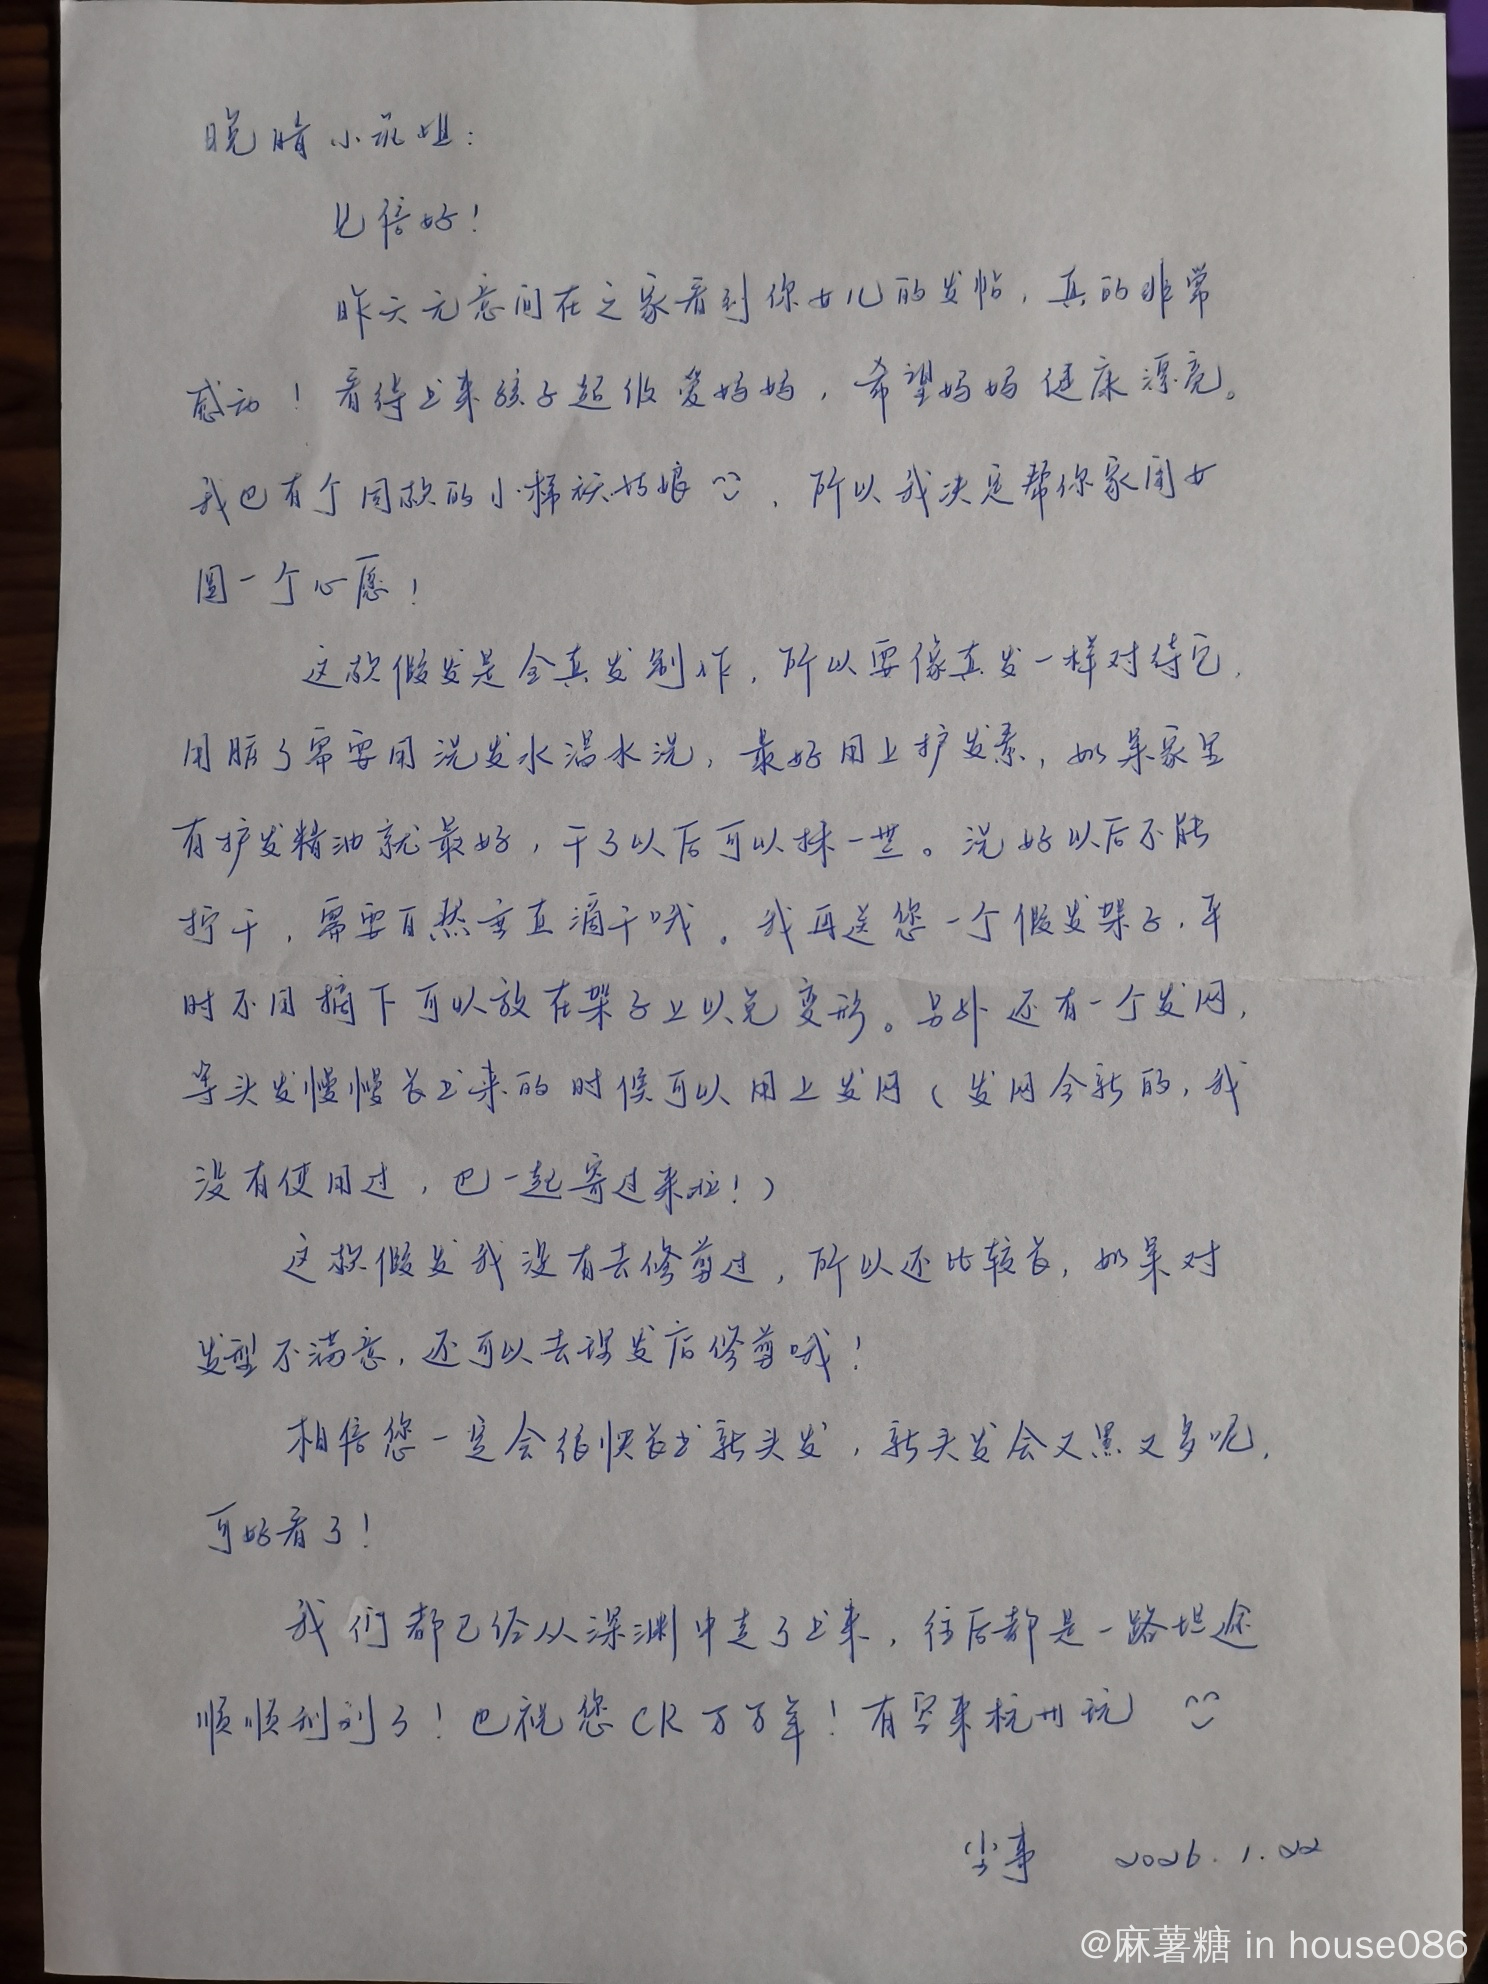 晚晴小姐姐：
见信好！
昨天无意间在之家看到你女儿的发帖，真的非常
感动！看得出来孩子超级爱妈妈，希望妈妈健康漂亮。
我也有个同款的小棉袄姑娘，所以我决定帮你家闺女
圆一个心愿！
这款假发是全真发制作，所以要像真发一样对待它，
用脏了需要用洗发水温水洗，最好用上护发素，如果家里
有护发精油就最好，干了以后可以抹一些。洗好以后不能
拧干，需要自然垂直滴干哦。我再送您一个假发架子，平
时不用摘下可以放在架子上以免变形。另外还有一个发网，
等头发慢慢长出来的时候可以用上发网（发网全新的，我
没有使用过，也一起寄过来啦！）
这款假发我没有去修剪过，所以还比较长，如果对
发型不满意，还可以去理发店修剪哦！
相信您一定会很快长出新头发，新头发会又黑又多呢，
可好看了！
我们都已经从深渊中走了出来，往后都是一路坦途
顺顺利利了！也祝您CR万万年！有空来杭州玩
2026.1.22
@麻薯糖 in house086